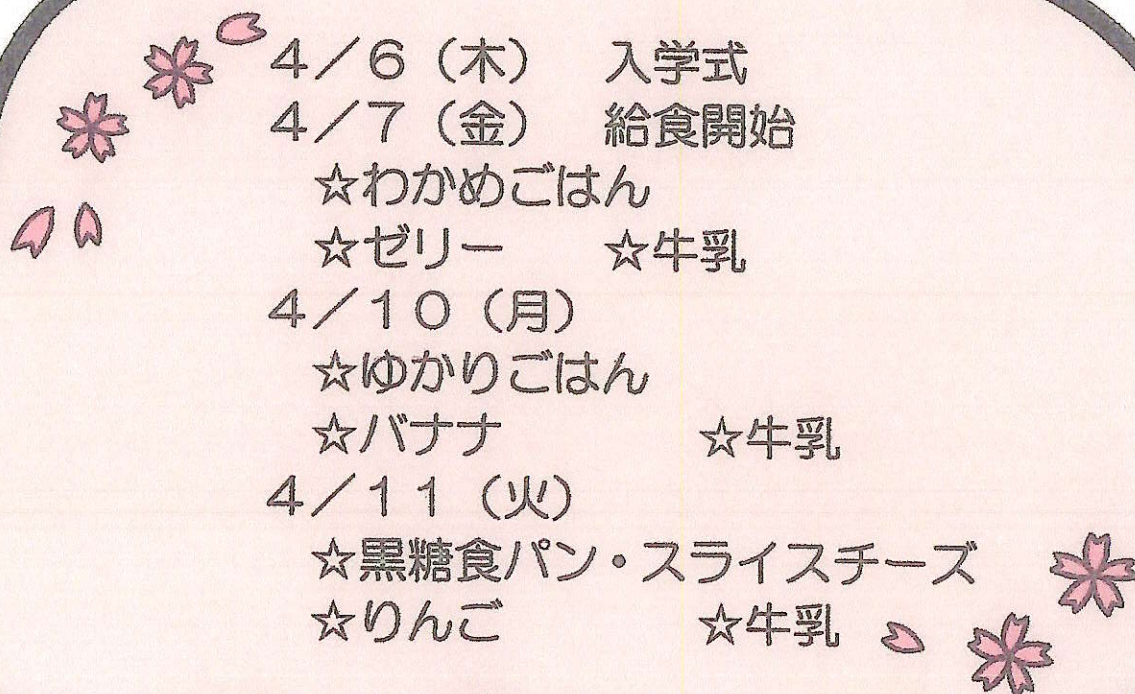 ４／６（木）　入学式
４／７（金）　給食開始
☆わかめごはん
☆ゼリー　　☆牛乳
４／１０（月）
☆ゆかりごはん
☆バナナ　　　　☆牛乳
４／１１（火）
☆黒糖食パン・スライスチーズ
☆りんご　　　　☆牛乳